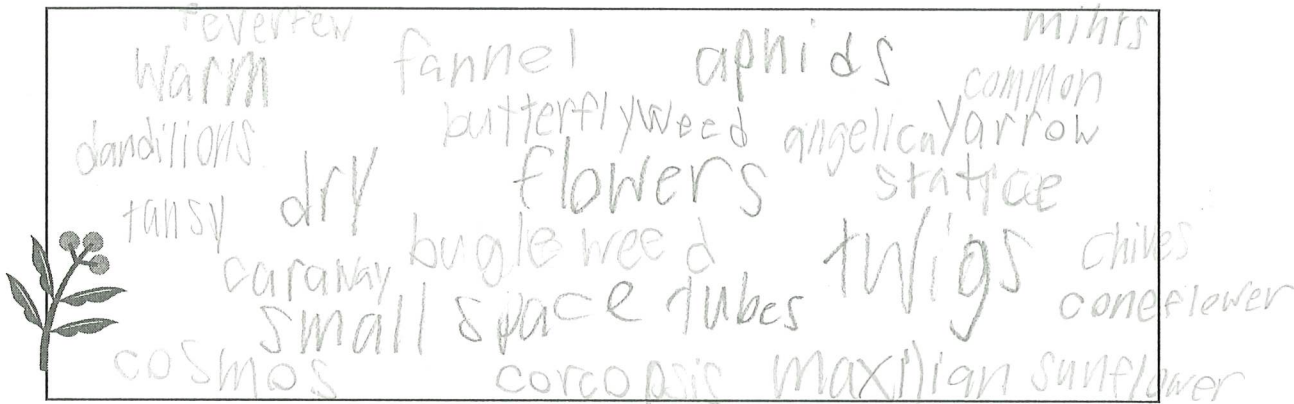 feverfew mints
warm fannel aphids common
dandilions butterflyweed angelica yarrow
dry flowers statice
tansy bugleweed twigs chives
caraway small space tubes coneflower
cosmos corcopsis maxilian sunflower